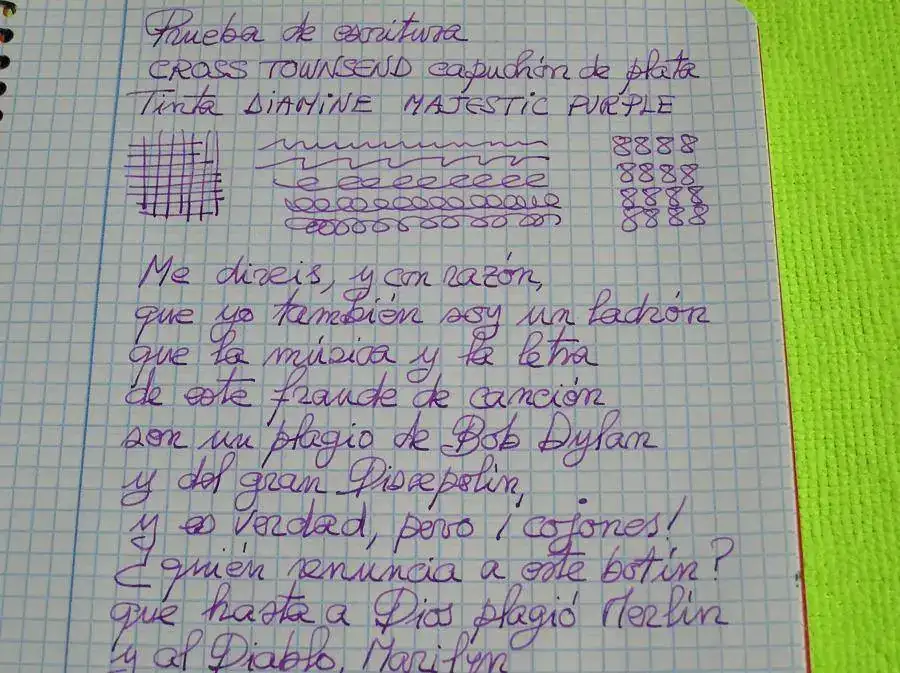 Prueba de escritura
CROSS TOWNSEND capuchón de plata
Tinta DIAMINE MAJESTIC PURPLE
8888
8888
8888
8888
Me direis, y con razón,
que yo también soy un ladrón
que la música y la letra
de este fraude de canción
son un plagio de Bob Dylan
y del gran Discepolin,
y es verdad, pero ¡cojones!
¿quién renuncia a este botín?
que hasta a Dios plagió Merlín
y al Diablo, Marilyn